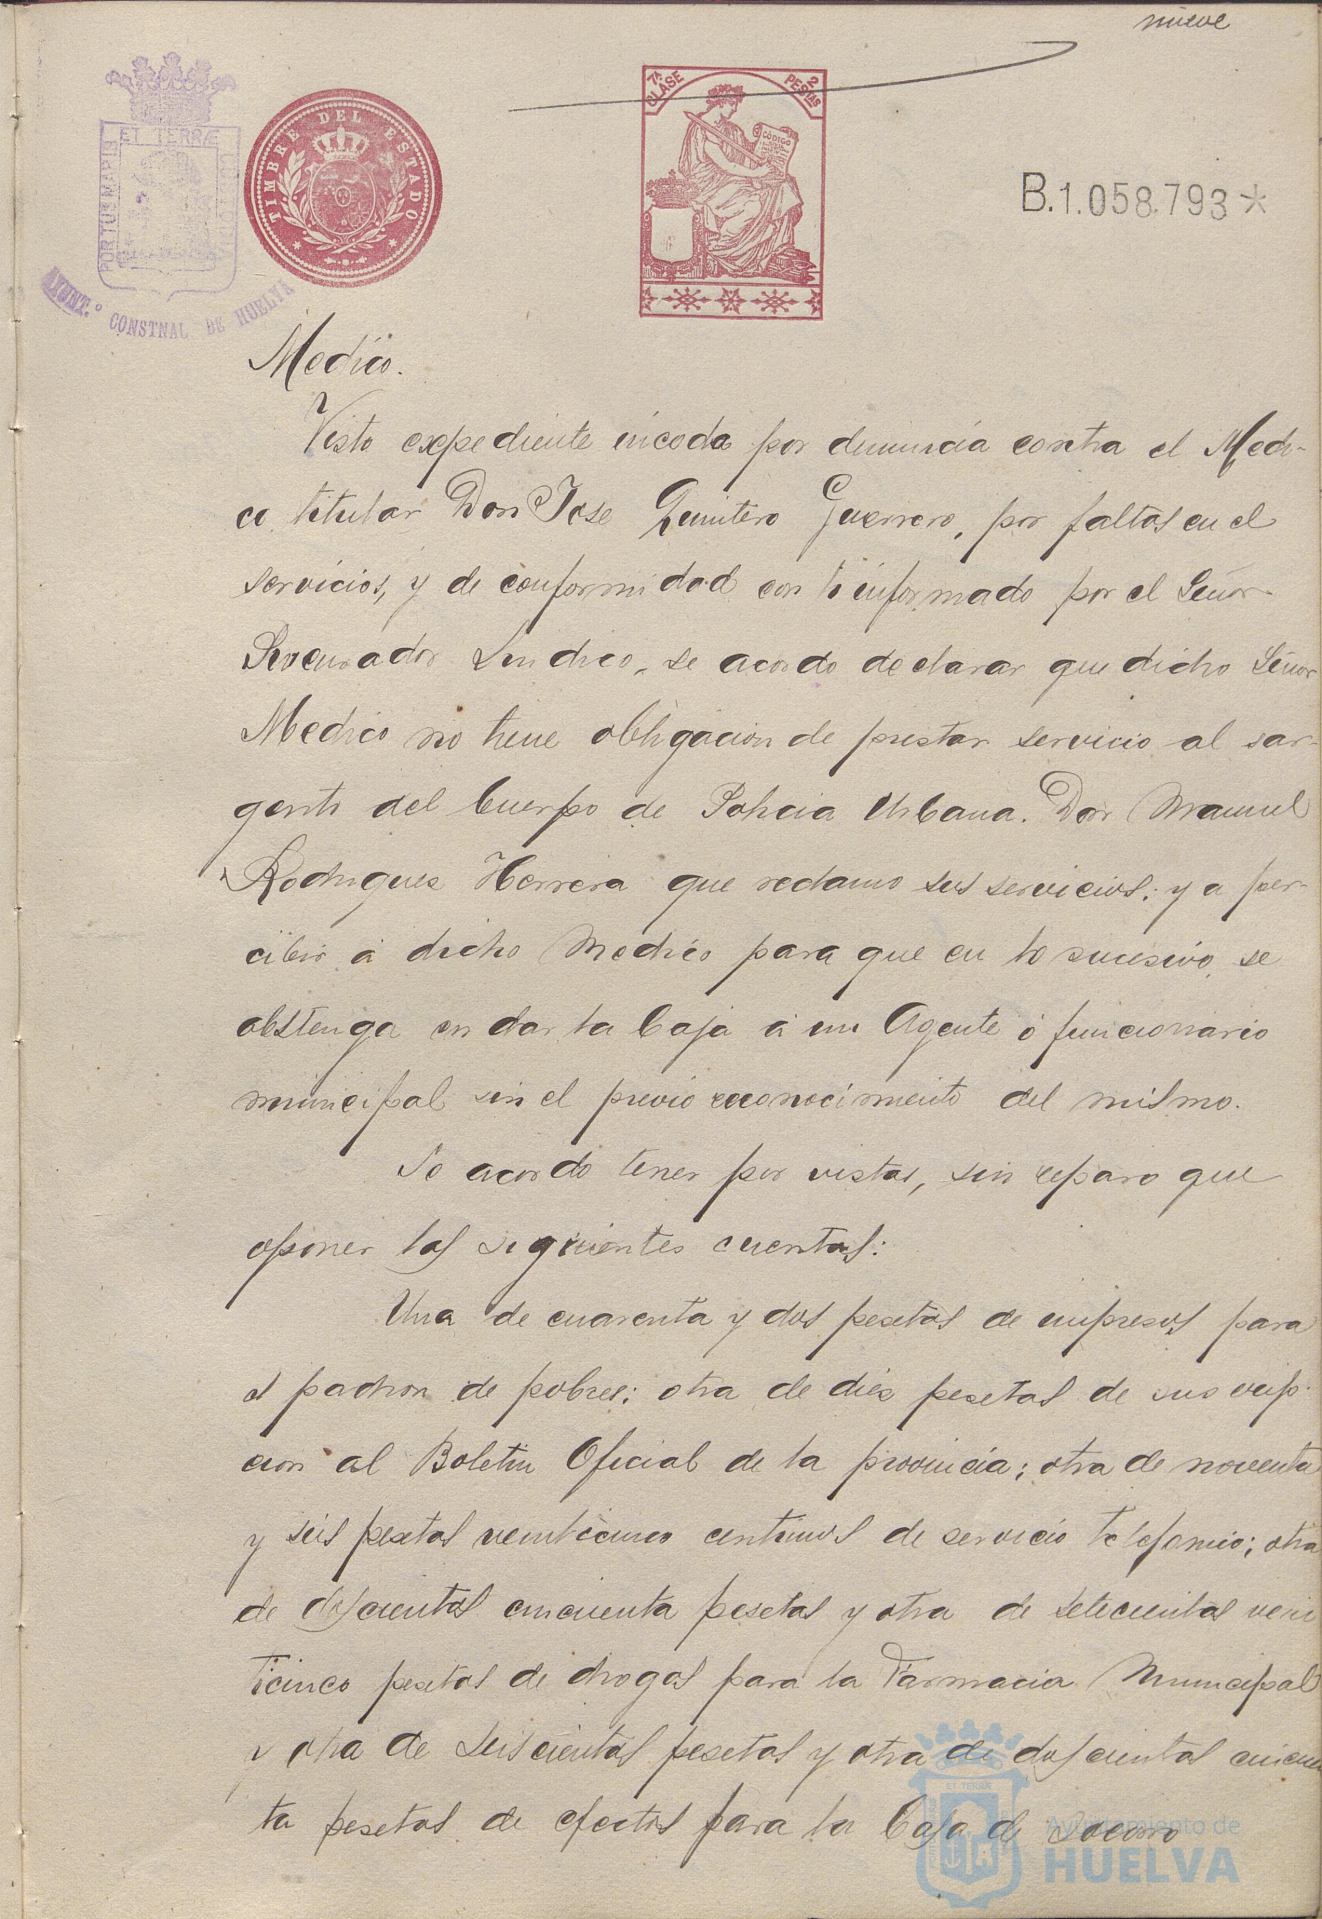 nueve
7ª CLASE
2 PESTAS
CÓDIGO
TIMBRE DEL ESTADO
ET TERRÆ
PORTUS MARIS
AYUNT.º CONSTNAL DE HUELVA
B.1.058.793*
Medico.
Visto expediente incoado por denuncia contra el Medi-
co titular Don Jose Quintero Guerrero, por faltas en el
servicios, y de conformidad con lo informado por el Señor
Procurador Sindico, se acordo declarar que dicho Señor
Medico no tiene obligacion de prestar servicio al sar-
gento del Cuerpo de Policia Urbana. Don Manuel
Rodriguez Herrera que reclamo sus servicios; y a per-
cibir á dicho Medico para que en lo sucesivo se
abstenga en dar la baja á un Agente ó funcionario
municipal sin el previo reconocimiento del mismo.
Se acordo tener por vistas, sin reparo que
oponer las siguientes cuentas:
Una de cuarenta y dos pesetas de impresos para
el padron de pobres; otra de diez pesetas de suscrip-
cion al Boletin Oficial de la provincia; otra de noventa
y seis pesetas veinticinco centimos de servicio telefonico; otra
de doscientas cincuenta pesetas y otra de setecientas vein
ticinco pesetas de drogas para la Farmacia Municipal
y otra de seiscientas pesetas y otra de doscientas cincuen
ta pesetas de efectos para la Casa de Socorro
Ayuntamiento de
HUELVA